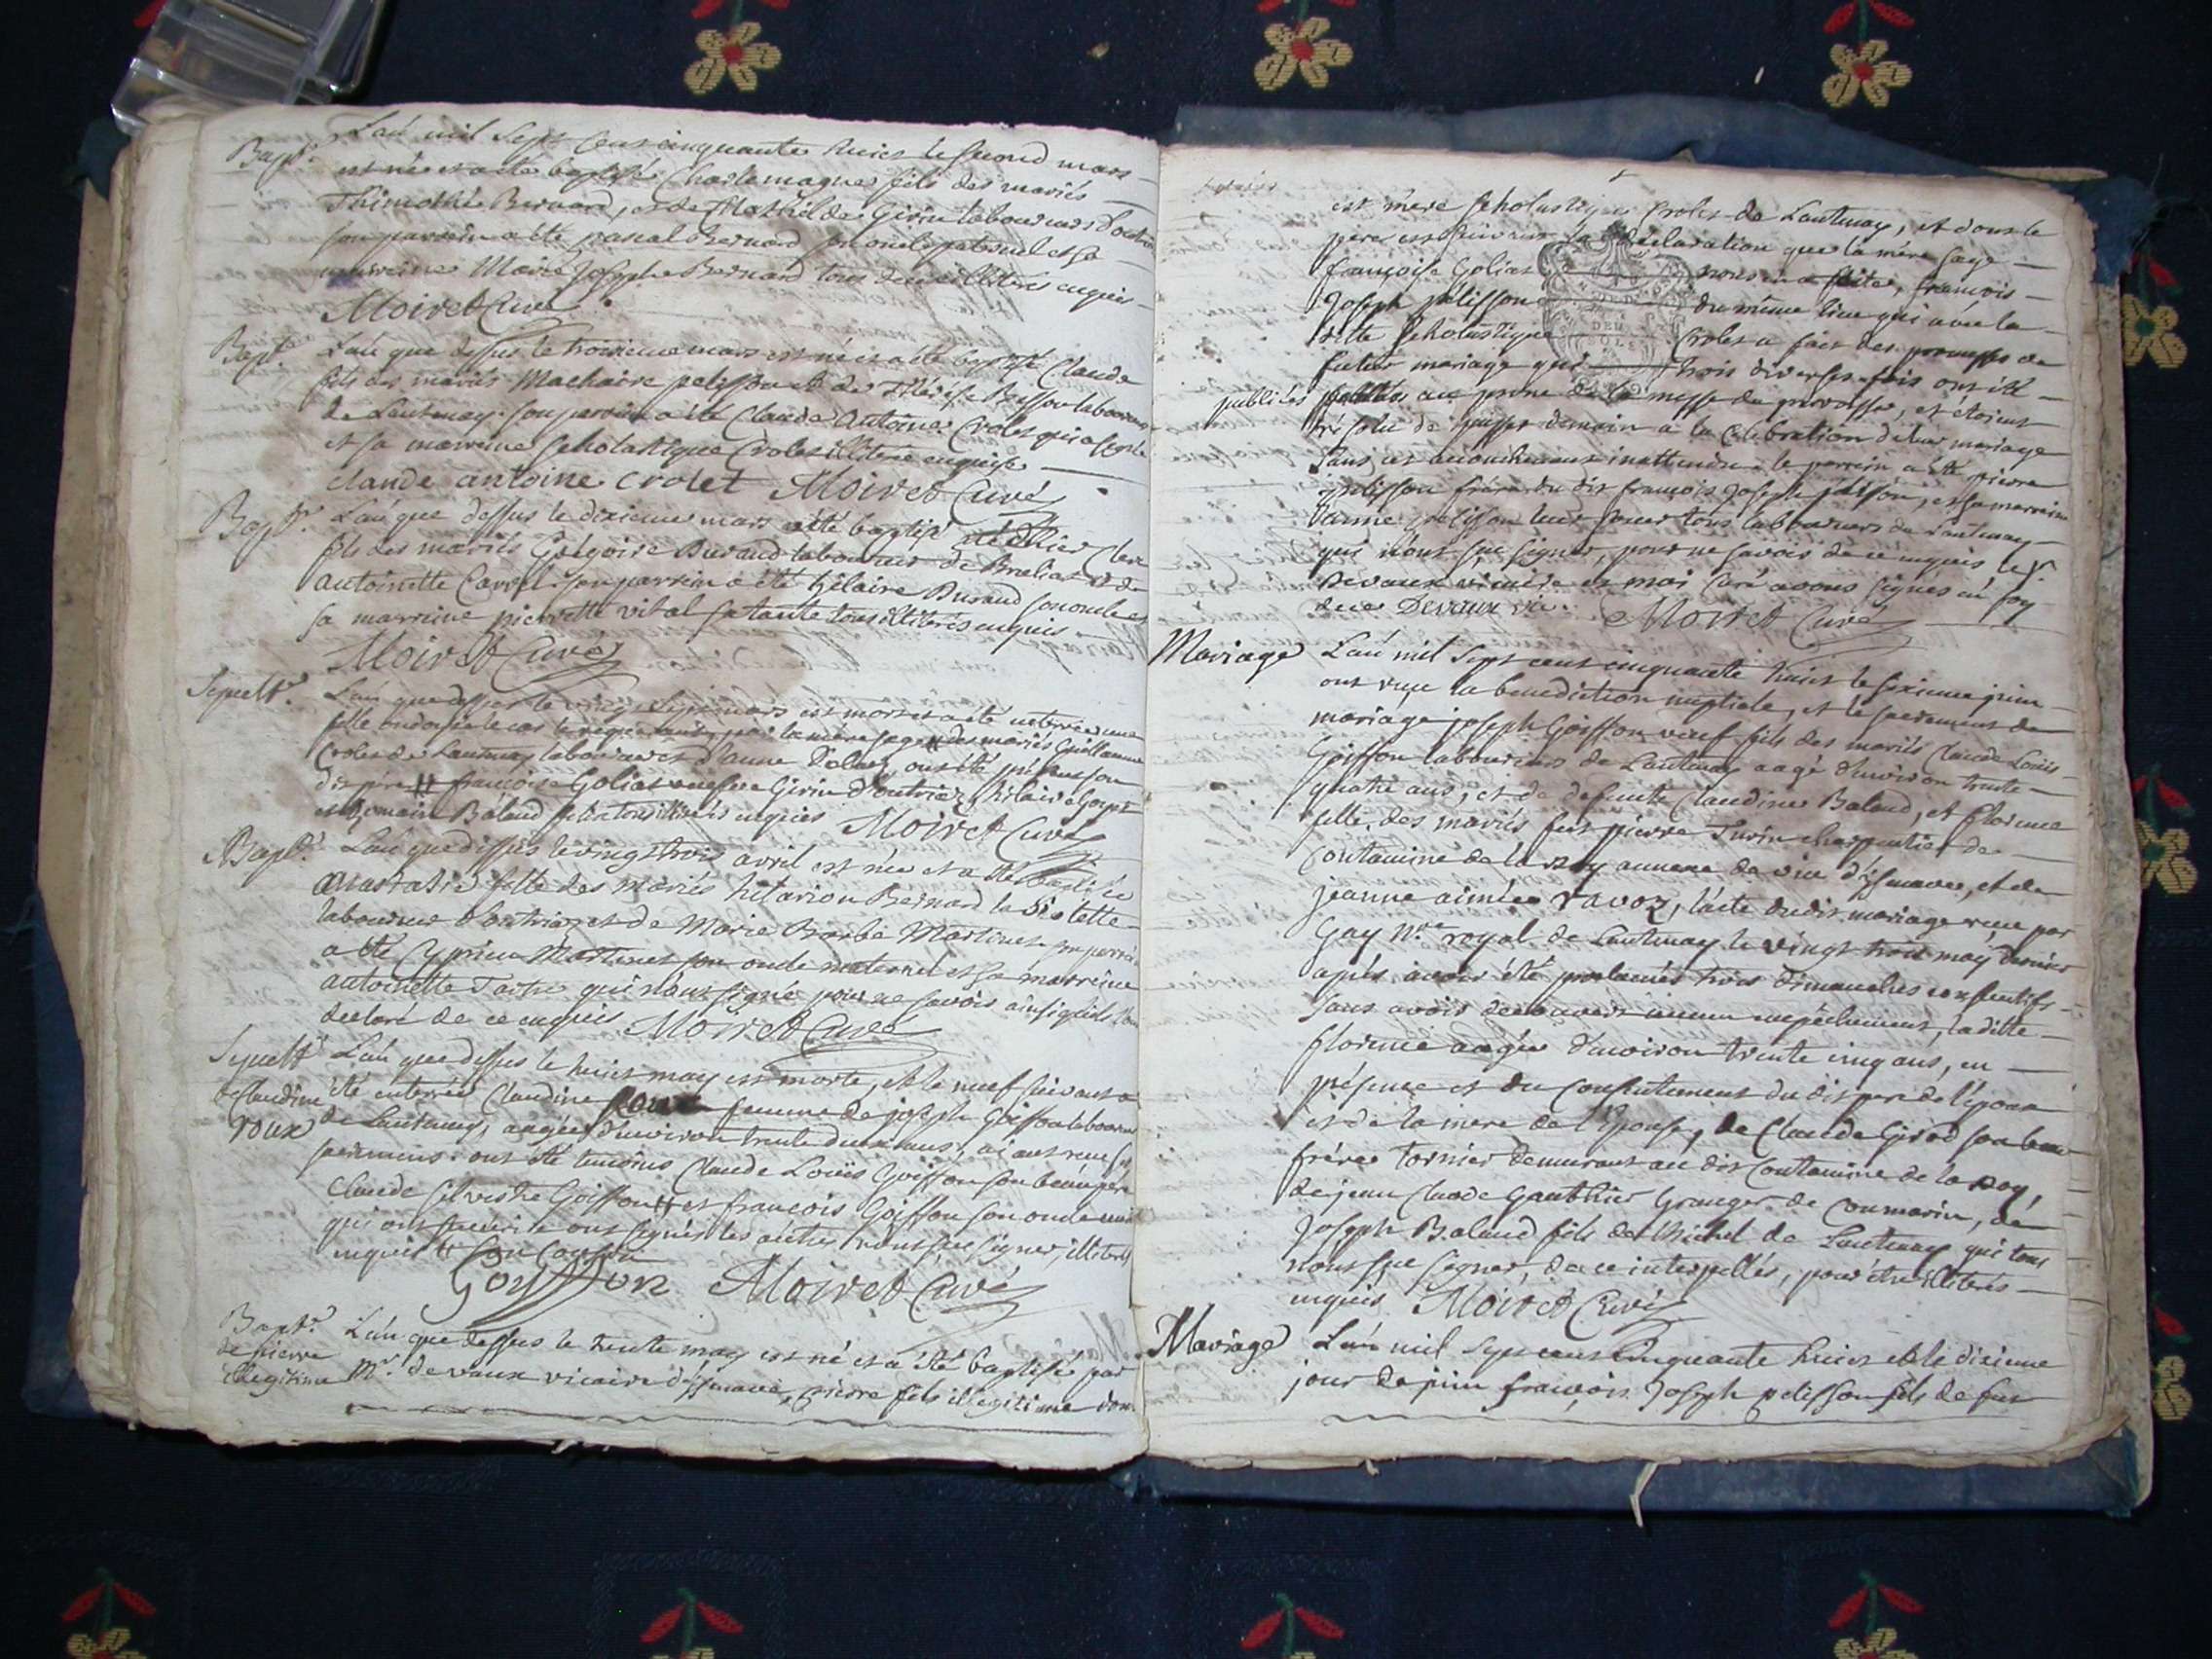 Bapt.e L'an mil sept cens cinquante huict le second mars
est né et a été baptisé Charlemagne fils des mariés
Thimothée Bernard, et de Mathilde Girin laboureurs d'outriaz
son parrein a été pascal Bernard son oncle paternel et sa
marreine Marie Josephe Bernard tous deux illiterés enquis
Moiret Curé
Bapt.e L'an que dessus le troisieme mars est né et a été baptisé Claude
fils des mariés Machaire pelisson et de Thérése Buffon laboureurs
de Lantenay. son parrein a été Claude Antoine Crolet qui a signé
et sa marreine Scholastique Crolet illiterée enquise
claude antoine crolet Moiret Curé
Bapt.e L'an que dessus le dixieme mars a été baptisé né d'hier
fils des mariés Grégoire Durand laboureur de Brelias et de
antoinette Carrel. son parrein a été hilaire Durand son oncle et
sa marreine pierrette vital sa tante tous illiterés enquis
Moiret Curé
Sepult.e L'an que dessus le vingt sept mars est mort et a été enterré une
fille ondoyée le cas le requerant, par la mère sage # des mariés Guillaume
Crolet de Lantenay laboureur et d'anne ont été présens son
dit père # françoise Golias veufve Girin d'outriaz, hilaire
et Romain Baland tous illiterés enquis Moiret Curé
Bapt.e L'an que dessus le vingt trois avril est née et a été baptisée
anastasie fille des mariés hilarion Bernard la violette
laboureur d'outriaz et de Marie Barbe Martinet. son perrein
a été Cyprien Martinet son oncle maternel et sa marreine
antoinette Tartre qui n'ont signé pour ne savoir ainsi qu'ils l'ont
declaré de ce enquis Moiret Curé
Sepult.e L'an que dessus le huict may est morte, et le neuf suivant a
de Claudine été enterrée Claudine femme de joseph Goiffon laboureur
roux de Lantenay, aagée d'environ trente deux ans, aiant receu ses
sacremens. ont été temoins Claude Loüis Goiffon son beaupere
Claude Silvestre Goiffon # et françois Goiffon son oncle
qui ont signés les autres n'ont sçu signer, illiterés
enquis # son cousin
Goiffon Moiret Curé
Bapt.e L'an que dessus le trente may est né et a été baptisé par
de pierre
illegitime Mr. de vaux vicaire d'ysenave, pierre fils illegitime dont
est mère Scholastique Crolet de Lantenay, et dont le
père est suivant la déclaration que la mère sage
françoise Golias nous en a faite, françois
Joseph pélisson du même lieu qui avec la
ditte Scholastique Crolet a fait des promesses de
futur mariage qui trois diverses fois ont été
publiées au prone de la messe de parroisse, et étoient
résolu de passer demain à la celebration de leur mariage
sans cet accouchement inattendu. le parrein a été pierre
pelisson frère du dit françois Joseph pélisson, et sa marreine
anne pelisson leur soeur tous laboureurs de Lantenay
qui n'ont sçu signer, pour ne savoir de ce enquis le Sr.
Devaux vicaire et moi Curé avons signés en foy
de ce Devaux vic. Moiret Curé
Mariage L'an mil sept cent cinquante huict le sixieme juin
ont reçu la benediction nuptiale, et le sacrement de
mariage joseph Goiffon veuf fils des mariés Claude Loüis
Goiffon laboureur de Lantenay aagé d'environ trente
quatre ans, et de defunte Claudine Baland, et florence
fille des mariés feu pierre Turin charpentier de
Contamine de la ray annexe de vieu d'ysenave, et de
jeanne aimée ravoz, l'acte dudit mariage receu par
Gay nre royal de Lantenay le vingt trois may dernier
après avoir été proclamés trois dimanches consecutifs
sans avoir decouvert aucun empêchement, la ditte
florence aagée d'environ trente cinq ans, en
présence et du consentement du dit pere de l'époux
et de la mere de l'Epouse, de Claude Girod son beau
frère tornier demeurant au dit Contamine de la ray,
de jean Claude Gauthier Granger de Coumarin, de
Joseph Baland fils de Michel de Lantenay qui tous
n'ont sçu signer, de ce interpellés, pour être illiterés
enquis Moiret Curé
Mariage L'an mil sept cent cinquante huict et le dixieme
jour de juin françois Joseph pelisson fils de feu